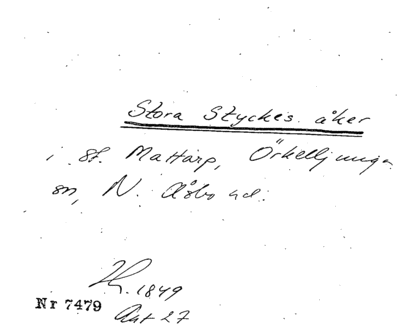 Stora Styckes åker
i St. Mattarp, Örkelljunga
sn, N. Åsbo hd.
1849
Nr 7479
Akt 27